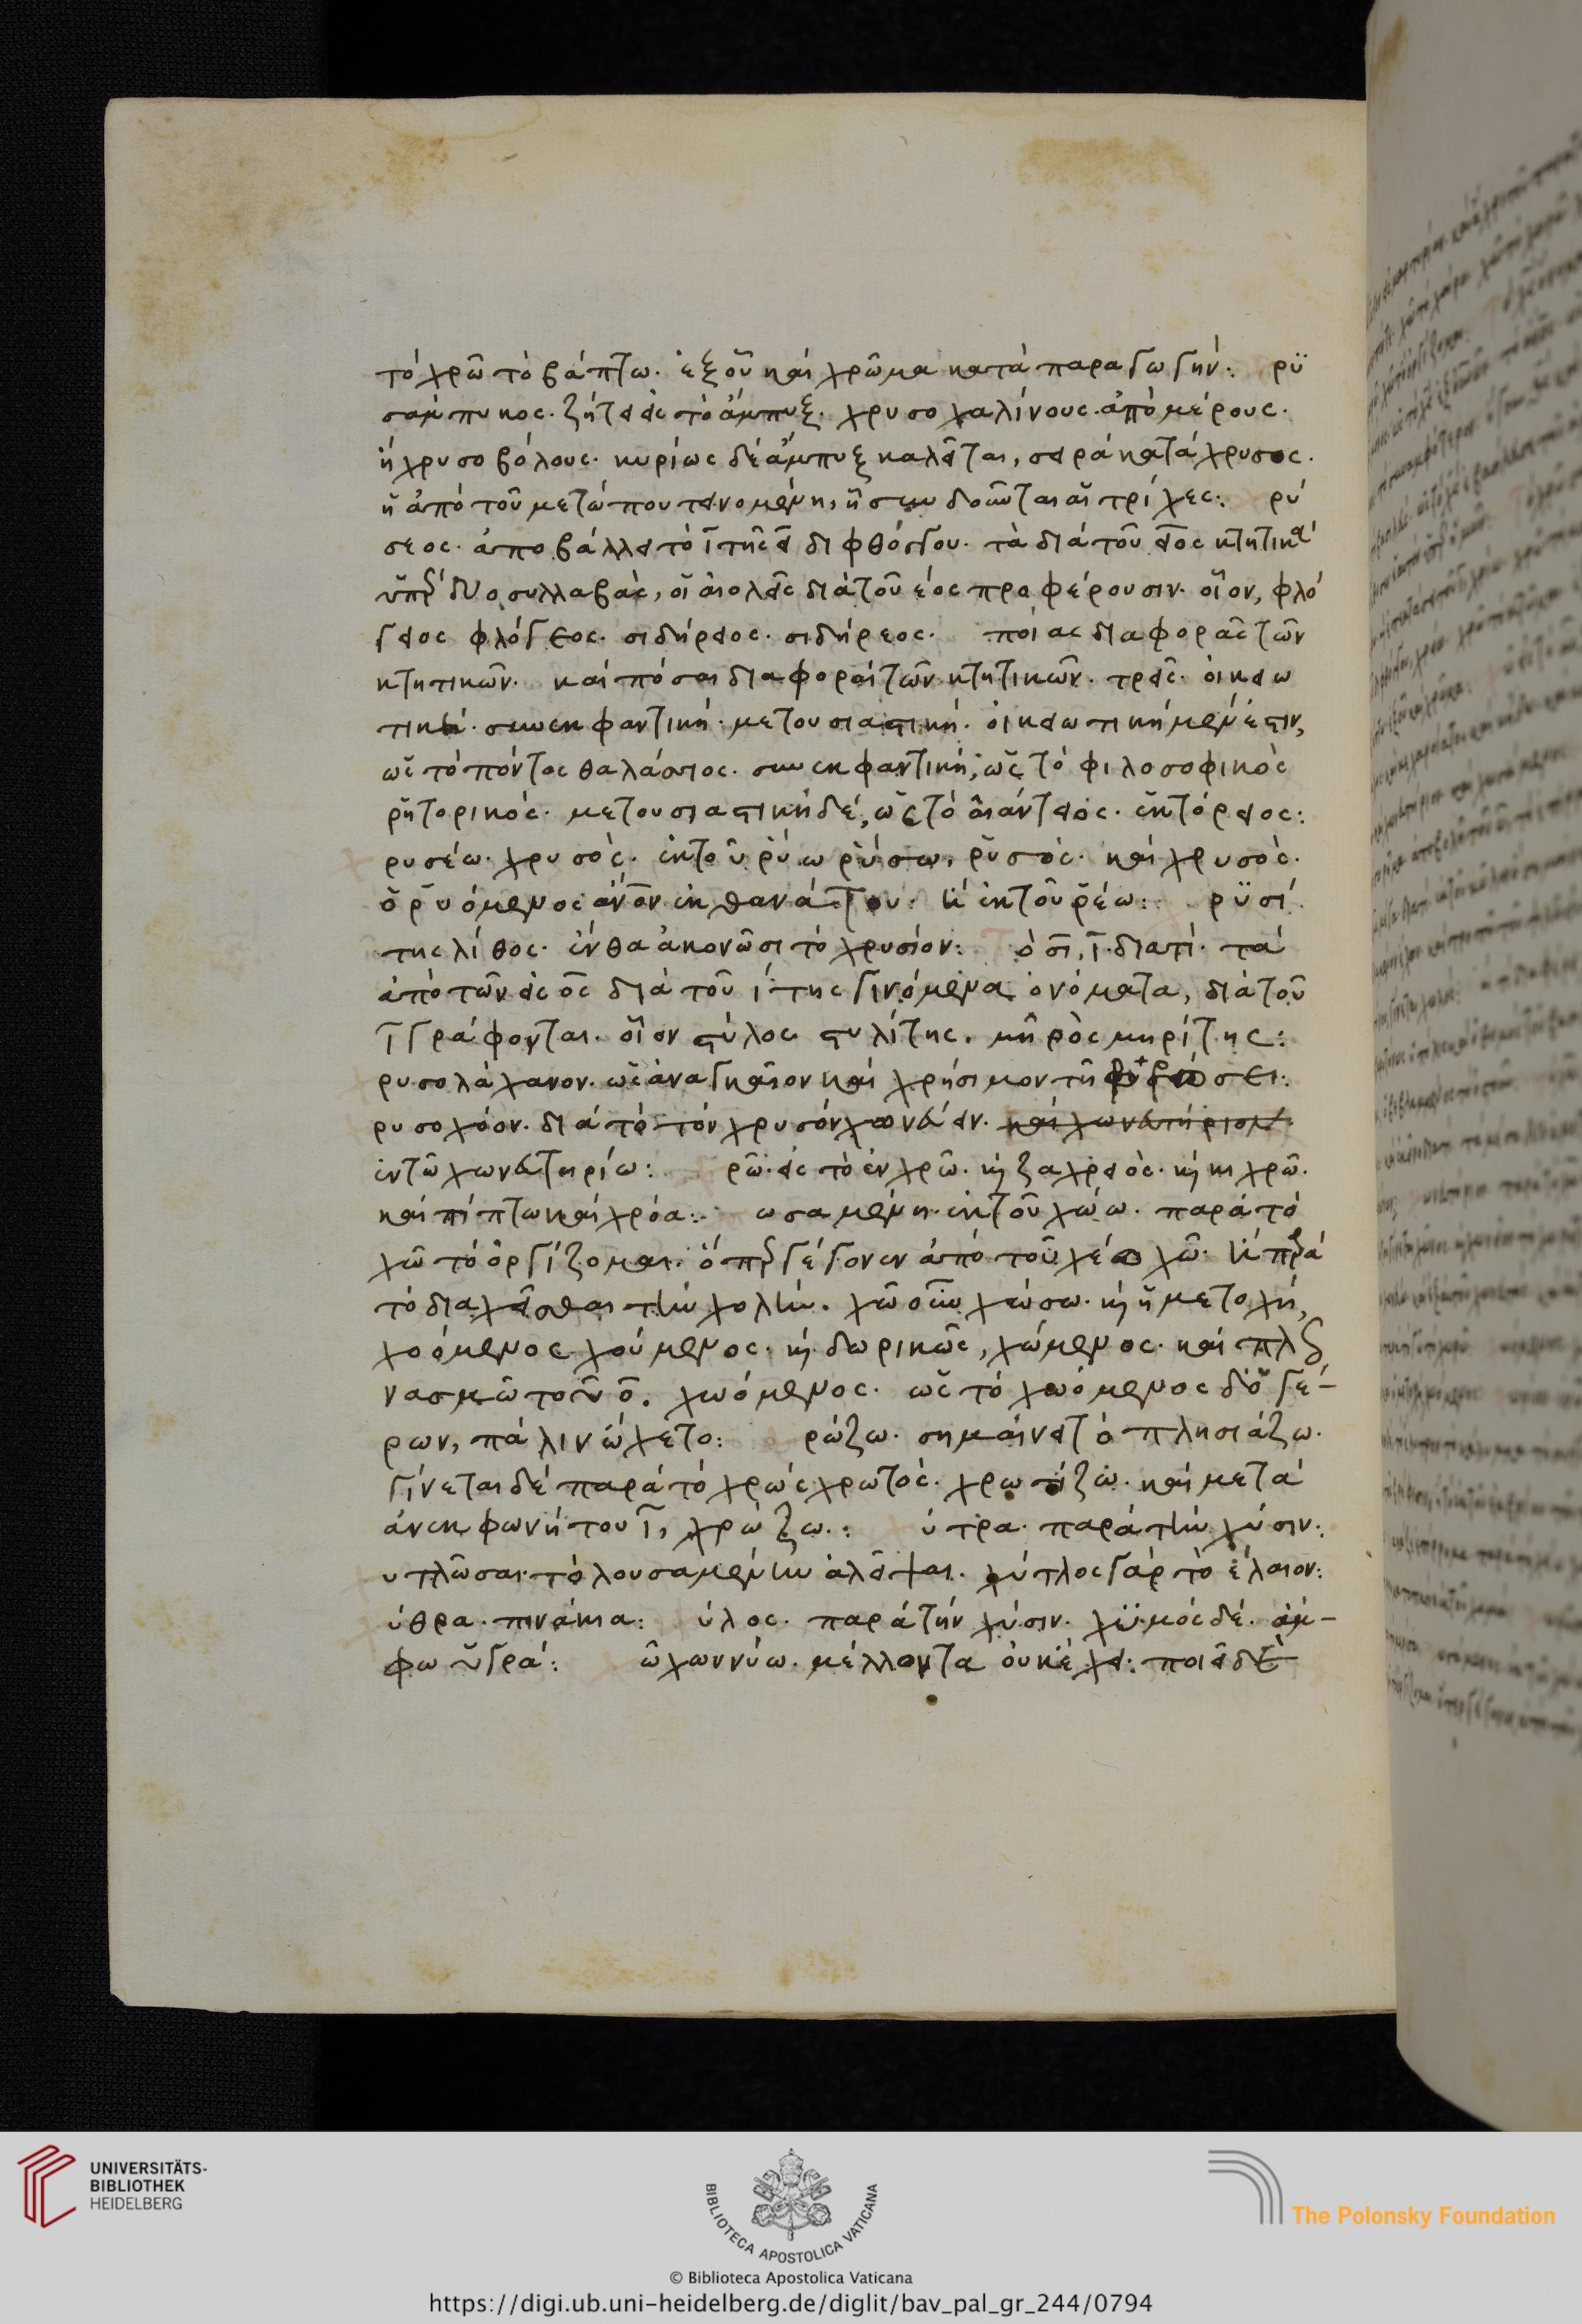 τὸ χρῶ τὸ βάπτω. ἐξ οὗ καὶ χρῶμα κατὰ παραγωγήν: ρϋ
σάμπυκος. ζήτει εἰς τὸ ἄμπυξ. χρυσοχαλίνους. ἀπὸ μέρους.
ἢ χρυσοβόλους. κυρίως δὲ ἄμπυξ καλεῖται, σειρὰ κατάχρυσος.
ἢ ἀπὸ τοῦ μετώπου τεινομένη, ᾗ συνδοῦνται αἱ τρίχες: ρύ
σεος. ἀποβάλλει τὸ ῑ τῆς ει διφθόγγου. τὰ διὰ τοῦ ειος κτητικὰ
ὑπὲρ δύο συλλαβὰς, οἱ αἰολεῖς διὰ τοῦ έος προφέρουσιν. οἷον, φλό
γειος φλόγεος. σιδήρειος. σιδήρεος. ποίας διαφορᾶς τῶν
κτητικῶν. καὶ πόσαι διαφοραὶ τῶν κτητικῶν. τρεῖς. οἰκειω
τική. συνεκφαντική. μετουσιαστική. οἰκειωτικὴ μέν ἐστιν,
ὡς τὸ πόντος θαλάσσιος. συνεκφαντικὴ, ὡς τὸ φιλοσοφικὸς
ῥητορικός. μετουσιαστικὴ δέ, ὡς τὸ αἰάντειος. ἑκτόρειος:
ρυσέω. χρυσὸς. ἐκ τοῦ ῥύω ῥύσω, ῥυσὸς. καὶ χρυσὸς.
ὁ ῥυόμενος ἄνον ἐκ θανάτου: ἢ ἐκ τοῦ ῥέω: ρϋσί
της λίθος. ἔνθα ἀκονῶσι τὸ χρυσίον: ῑ. διατί. τὰ
ἀπὸ τῶν εἰς ος διὰ τοῦ ίτης γινόμενα ὀνόματα, διὰ τοῦ
ῑ γράφονται. οἷον στύλος στυλίτης. μηρὸς μηρίτης:
ρυσολάχανον. ὡς ἀναγκαῖον καὶ χρήσιμον τῇ
ρυσοχόον. διὰ τὸ τὸν χρυσὸν χωνεύειν. καὶ χωνευτήριον
ἐν τῶ χωνευτηρίω: ρῶ. εἰς τὸ ἐν χρῶ. κỳ ζαχρειὸς. κỳ κιχρῶ.
καὶ πίπτω καὶ χρόα: ωσαμένη. ἐκ τοῦ χώω. παρὰ τὸ
χῶ τὸ ὀργίζομαι. ὅπερ γέγονεν ἀπὸ τοῦ χέω χῶ. ἢ παρὰ
τὸ διαχεῖσθαι τὴν χολήν. χῶ οὖν χώσω. κỳ ἡ μετοχὴ,
χοόμενος χούμενος. κỳ δωρικῶς, χώμενος. καὶ πλεο
νασμῶ τοῦ ο̄. χωόμενος. ὡς τὸ χωόμενος δ' ὁ γέ-
ρων, πάλιν ὤχετο: ρώζω. σημαίνει τὸ πλησιάζω.
γίνεται δὲ παρὰ τὸ χρὼς χρωτὸς. χρωτίζω. καὶ μετὰ
ἀνεκφωνήτου ῑ, χρώζω.: ύτρα. παρὰ τὴν χύσιν:
υτλῶσαι. τὸ λουσαμένην ἀλεῖψαι. χύτλος γὰρ τὸ ἔλαιον:
ύθρα. πινάκια: ύλος. παρὰ τὴν χύσιν. χϋμὸς δέ. ἄμ-
φω ὑγρά: ῶ χωννύω. μέλλοντα οὐκ ἔχει: ποιεῖ δὲ
UNIVERSITÄTS-
BIBLIOTHEK
HEIDELBERG
BIBLIOTECA APOSTOLICA VATICANA
The Polonsky Foundation
© Biblioteca Apostolica Vaticana
https://digi.ub.uni-heidelberg.de/diglit/bav_pal_gr_244/0794